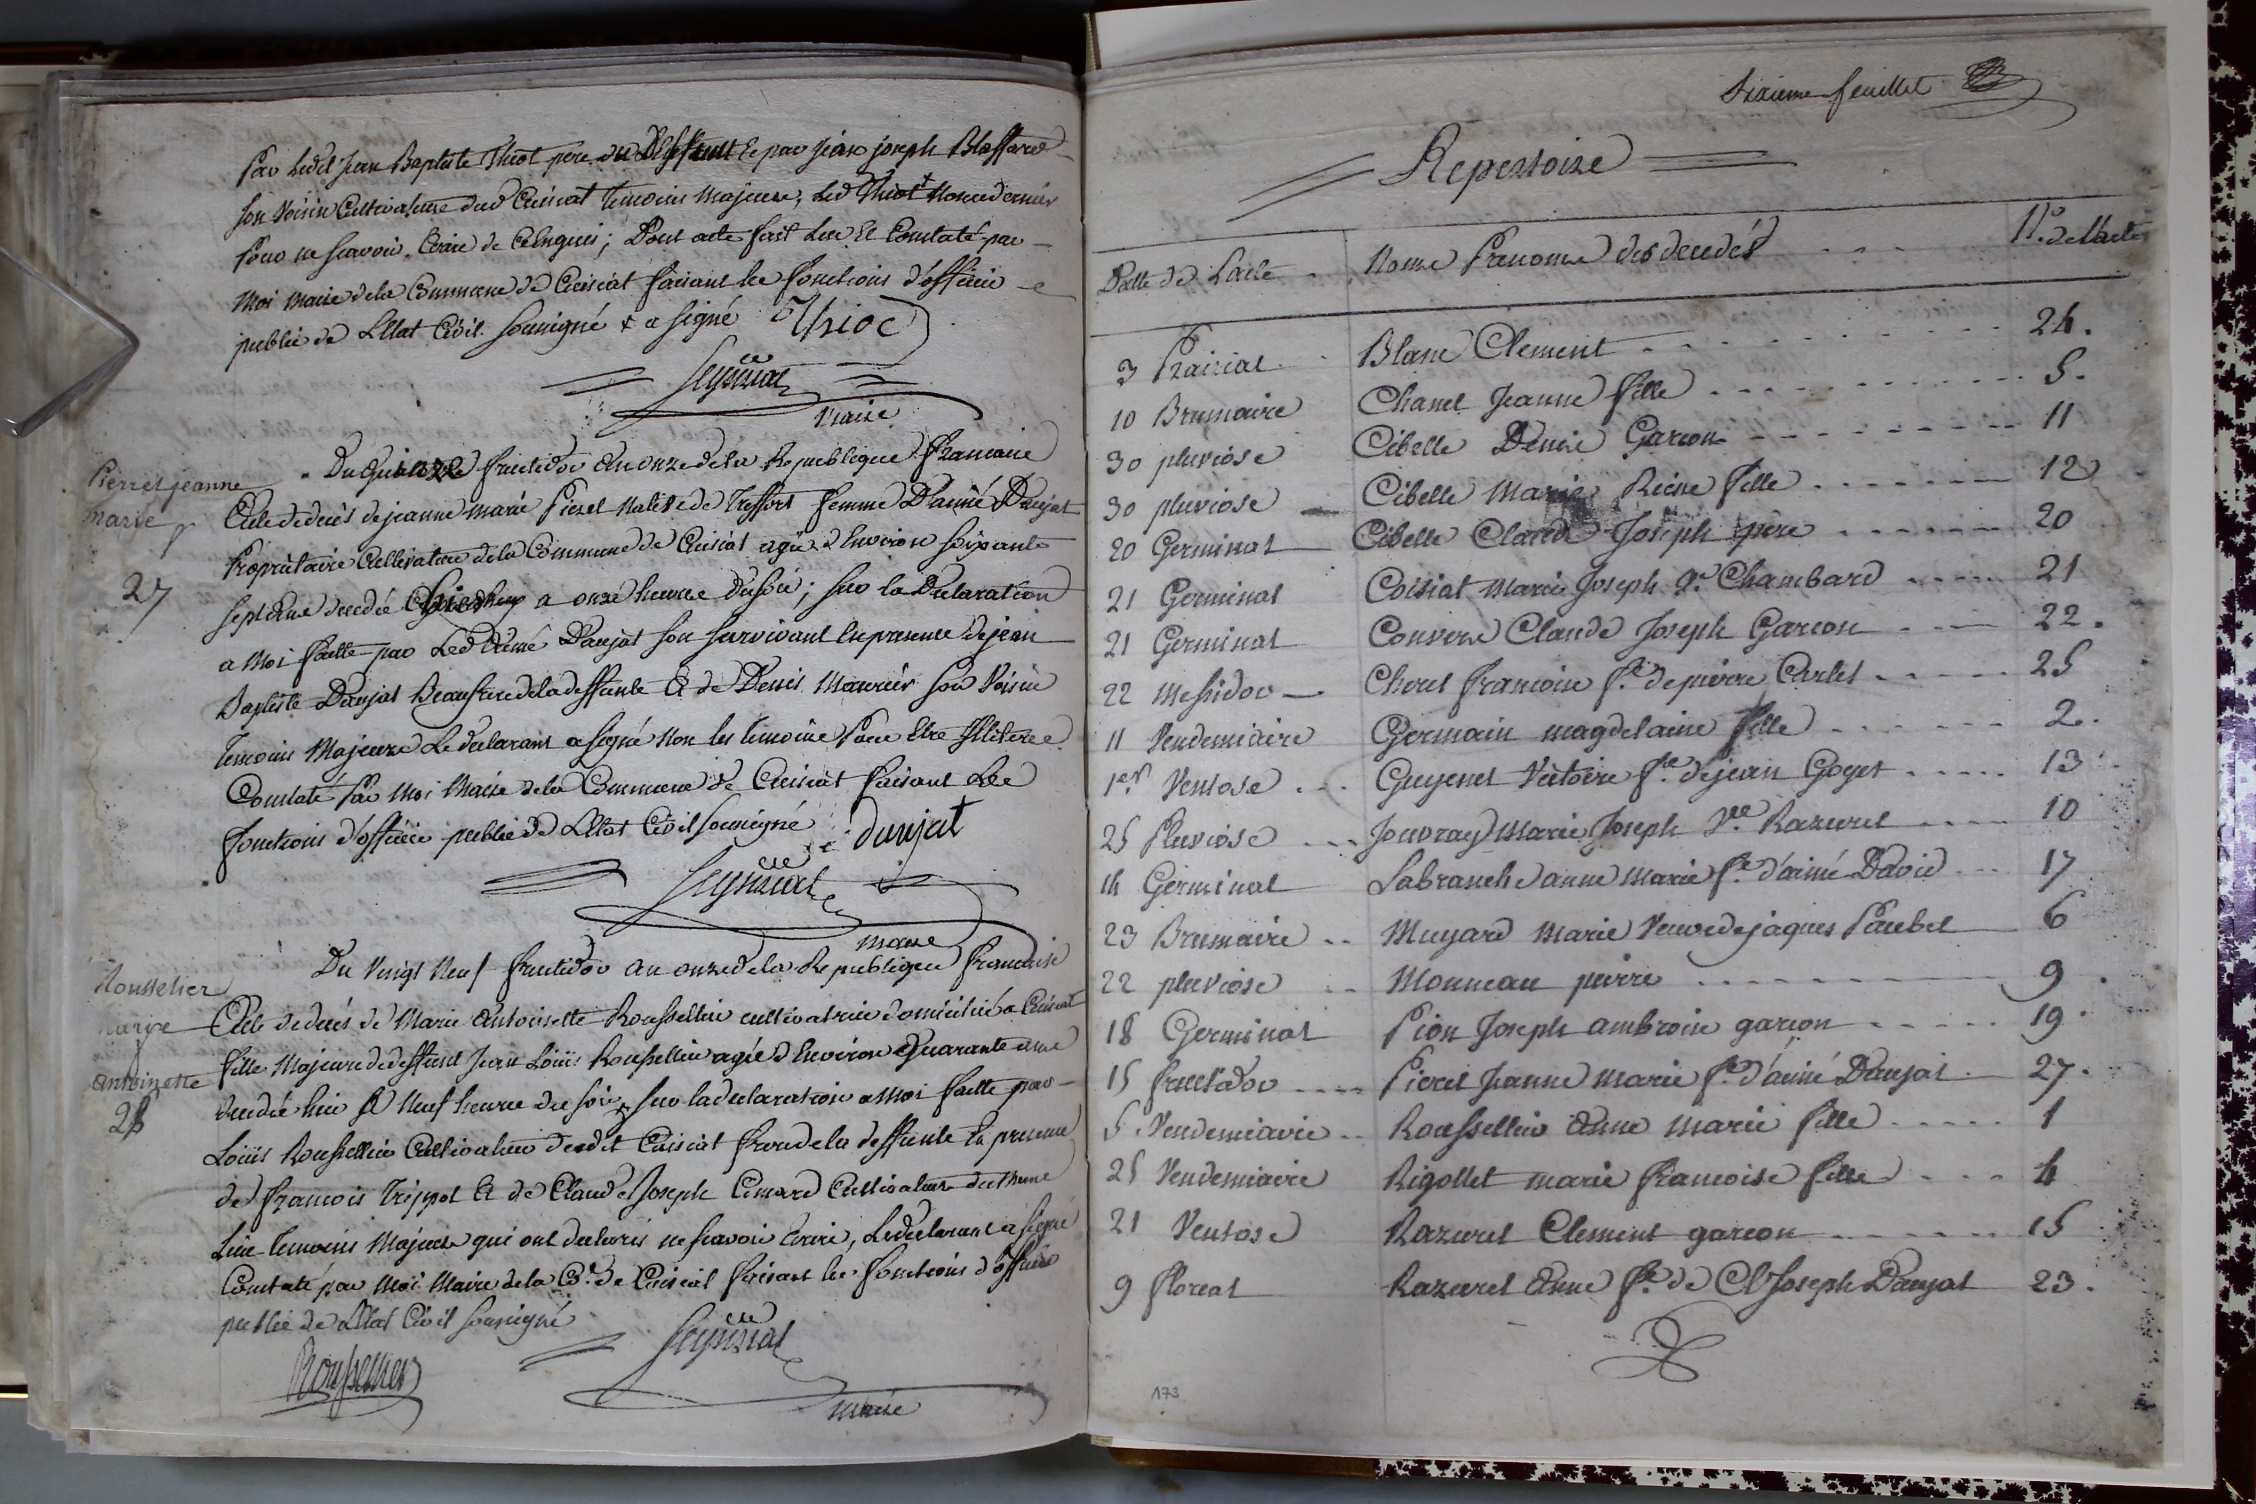 Par ledit Jean Baptiste Thiot pere du deffunt & par jean joseph Bloffard
son voisin Cultivateurs dud Cuisiat temoins majeurs, led Thiot & non ce dernier
pour ne scavoir Ecrire de ce Enquis; Dont acte fait Lue Et Constaté par
moi maire de la Commune de Cuisiat faisant les fonctions d'officier
public de L'Etat Civil soussigné & a signé Thiot
maire
Pierret jeanne
marie
27
Du quinze fructidor an onze de la Republique francaise
Acte de decés de jeanne marie Pieret Native de Treffort femme D'aimé Daujat
Propriétaire Cultivateur de la Commune de Cuisiat agée d'Environ soixante
sept ans decedée a onze heures du soir; sur la Declaration
a moi faitte par Led Aimé Daujat son survivant En presence de jean
Baptiste Daujat Beaufrere de la deffunte & de Denis son Voisin
temoins Majeurs Le declarant a signé non les temoins Pour Etre Illiteres
Constaté Par moi Maire de la Commune de Cuisiat faisant Les
fonctions d'officier public de L'Etat Civil soussigné daujat
maire
Rousselier
marie
antoinette
28
Du Vingt Neuf fructidor an onze de la Republique francaise
Acte de decés de Marie Antoinette Roussellier cultivatrice domiciliée a Cuisiat
fille Majeure de deffunt Jean Louis Roussellier agée d'Environ Quarante ans
decedée hier a Neuf heures du soir, sur la declaration a moi faitte par
Louis Roussellier Cultivateur dudit Cuisiat frere de la deffunte En presence
de francois Trippot & de Claude Joseph Cultivateurs du meme
Lieu temoins Majeurs qui ont declarés ne scavoir Ecrire, Le declarant a signé
Constaté par moi Maire de la Cne de Cuisiat faisant les fonctions d'officier
public de L'Etat Civil soussigné
Rousselier
maire
Sixieme feuillet
Repertoire
Datte de L'acte Noms Prenoms des decedés N.o de L'acte
3 Prairial Blanc Clement 24.
10 Brumaire Chanel Jeanne fille 5.
30 pluviose Cibelle Denise Garcon 11
30 pluviose Cibelle Marie Reine fille 12
20 Germinal Cibelle Claude Joseph pere 20
21 Germinal Coisiat Marie Joseph Ve Chambard 21
21 Germinal Convers Claude Joseph Garcon 22.
22 Messidor Choret francoise fe de pierre Carlet 25
11 Vendemiaire Germain magdelaine fille 2.
1er Ventose Guyenet Victoire fe de jean Goyet 13
25 Pluviose Jouvray Marie Joseph Vve Razurel 10
14 Germinal Labranche anne marie fe d'aimé David 17
23 Brumaire Muyard Marie Veuve de jaques Paubel 6
22 pluviose Monneau pierre 9
18 Germinal Pion Joseph ambroise garcon 19
15 fructidor Pieret Jeanne Marie fe d'aimé Daujat 27.
5 Vendemiaire Roussellier Anne Marie fille 1
25 Vendemiaire Rigollet marie francoise fille 4
21 Ventose Razurel Clement garcon 15
9 floreal Razurel Anne fe de Cl Joseph Daujat 23.
173